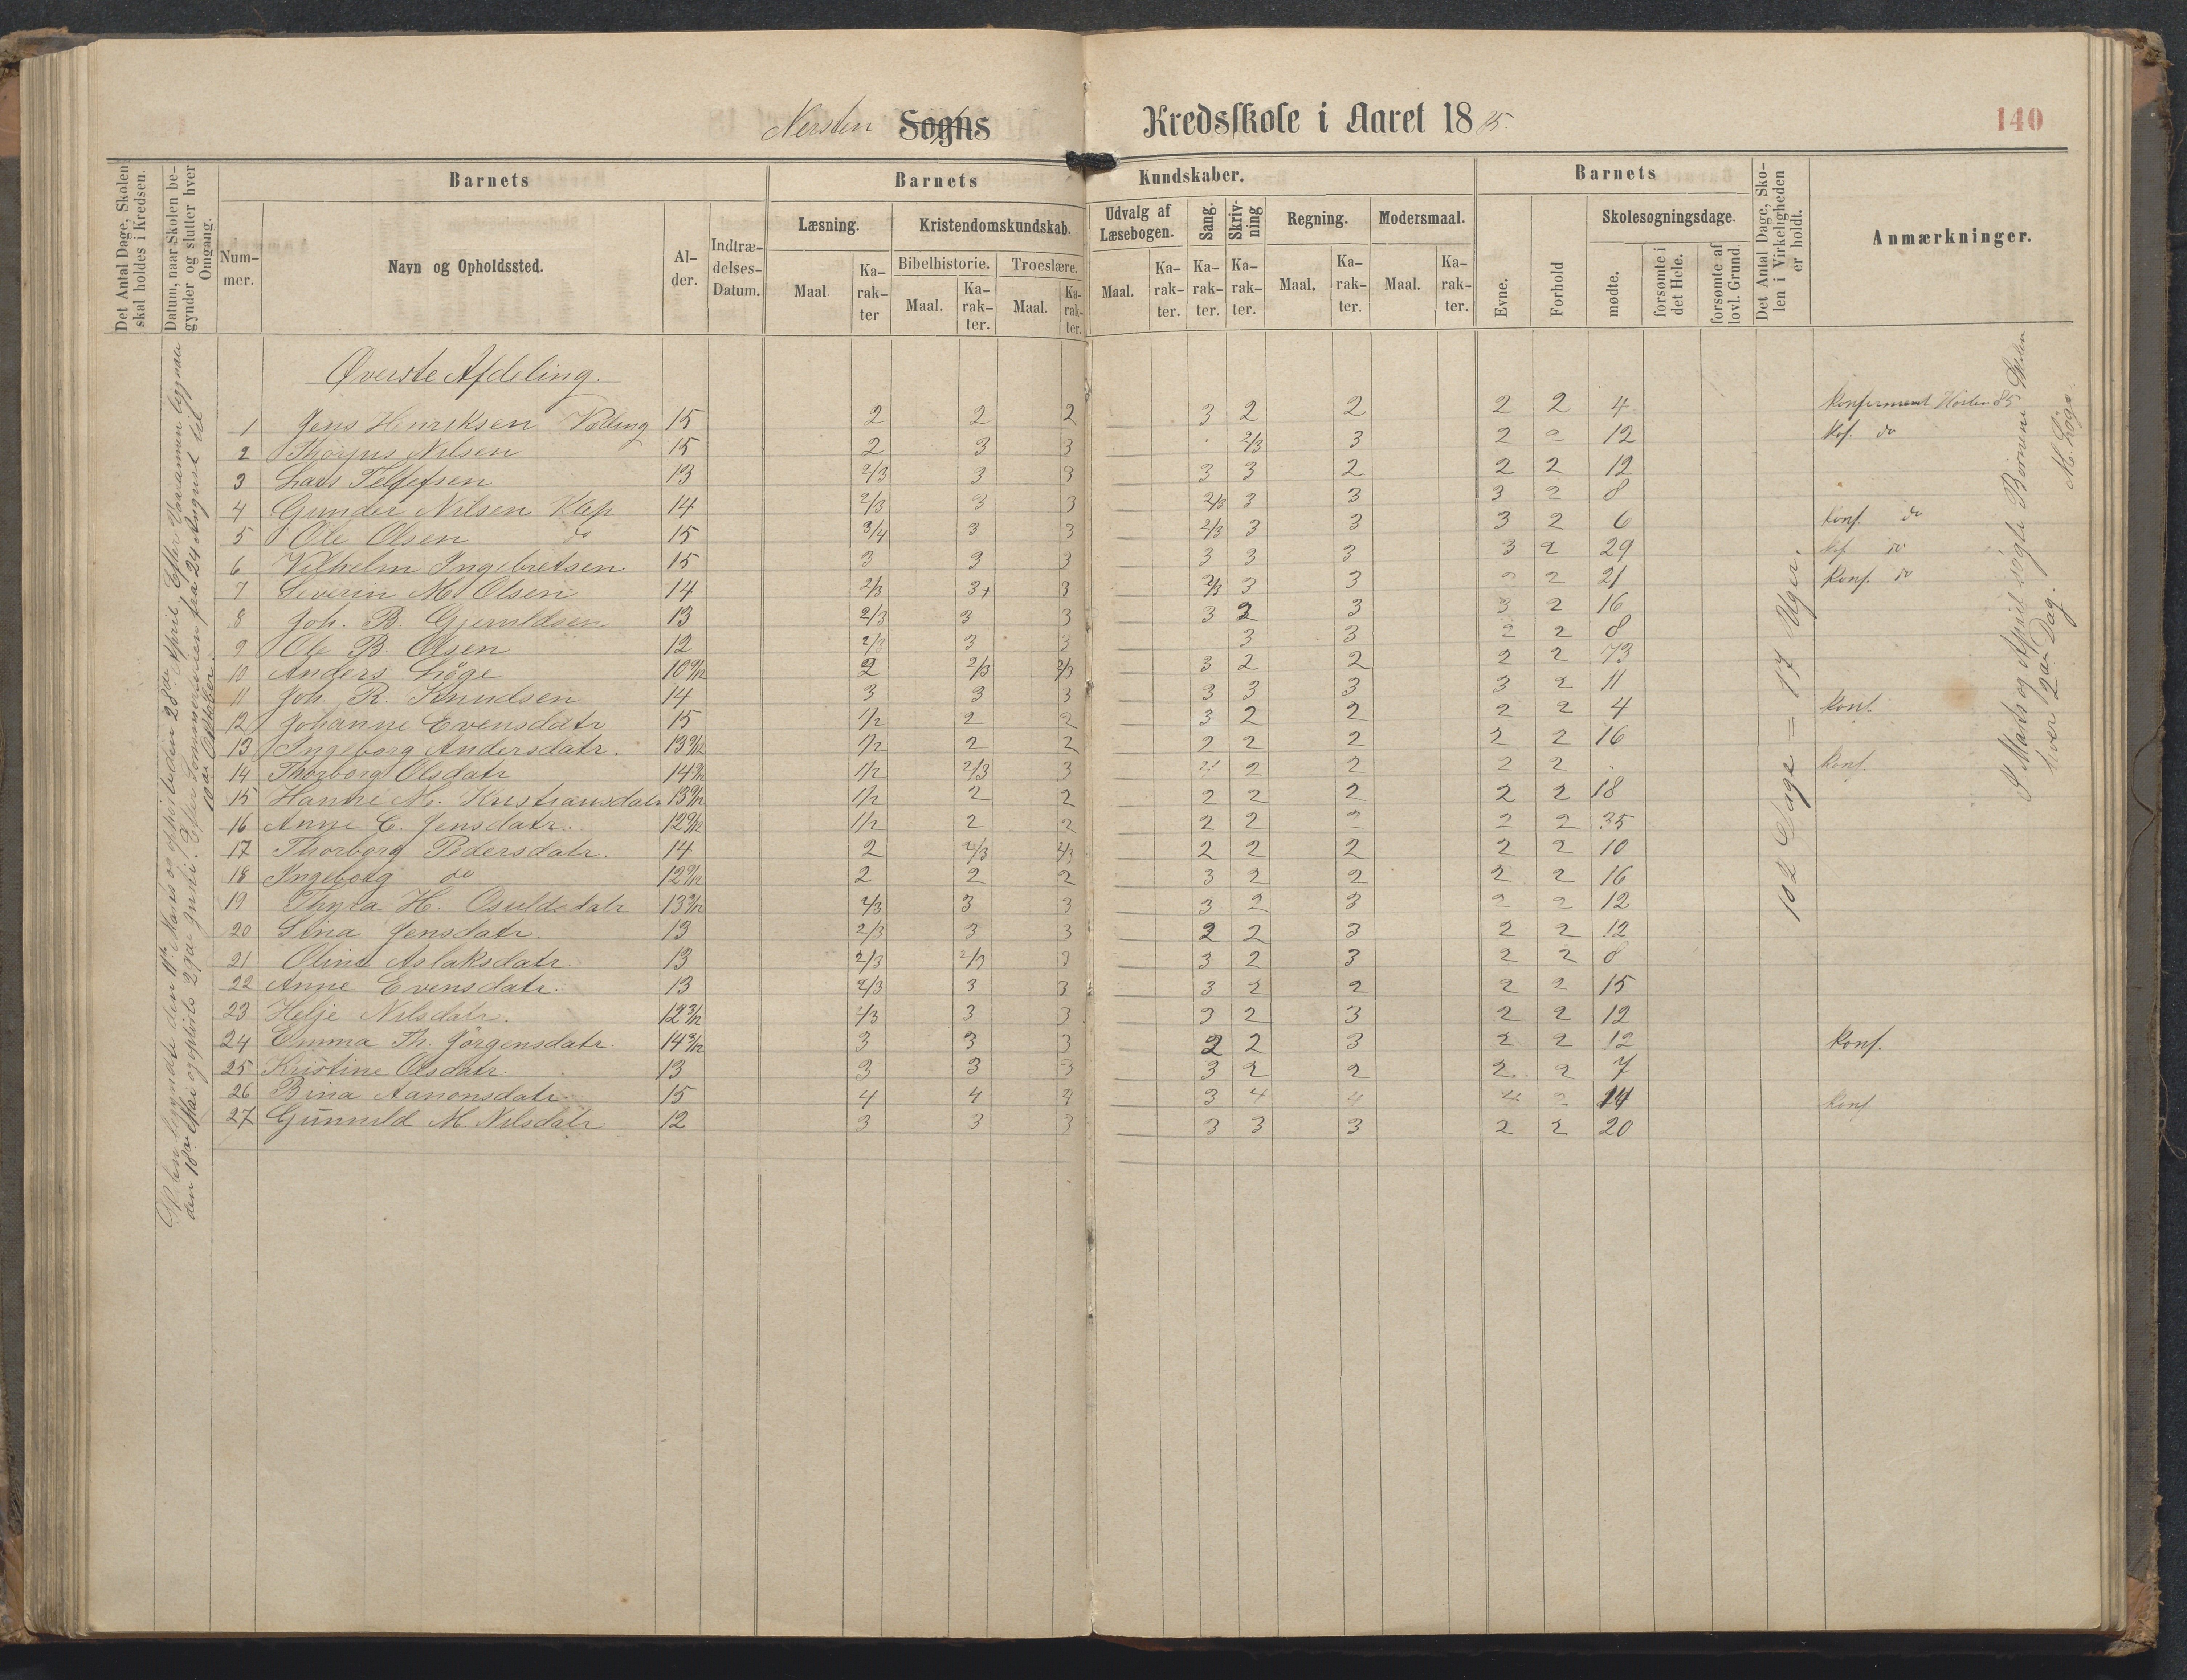 Nersten Sogns Kredsskole i Aaret 1885.
140
Det Antal Dage, Skolen skal holdes i Kredsen.
Datum, naar Skolen begynder og slutter hver Omgang.
Barnets
Nummer.
Navn og Opholdssted.
Alder.
Indtrædelses-Datum.
Barnets Kundskaber.
Læsning.
Maal
Karakter
Kristendomskundskab.
Bibelhistorie.
Maal.
Karakter.
Troeslære.
Maal.
Karakter.
Udvalg af Læsebogen.
Maal.
Karakter.
Sang.
Karakter.
Skrivning
Karakter.
Regning.
Maal.
Karakter.
Modersmaal.
Maal.
Karakter.
Barnets
Evne.
Forhold
Skolesøgningsdage.
mødte.
forsømte i det Hele.
forsømte af lovl. Grund
Det Antal Dage, Skolen i Virkeligheden er holdt.
Anmærkninger.
Øverste Afdeling.
1 Jens Henriksen 15 2 2 2 3 2 2 2 2 4 Konfirmeret Hösten 85
2 Nilsen 15 2 3 3 2/3 3 2 2 12 do
3 Lars Tellefsen 13 2/3 3 3 3 3 2 2 2 12
4 Gunder Nilsen Klep 14 2/3 3 3 2/3 3 3 3 2 8
5 Ole Olsen do 15 3/4 3 3 2/3 3 3 3 2 6 konf. do
6 Vilhelm Ingebretsen 15 3 3 3 3 3 3 3 2 29 do
7 Severin M. Olsen 14 2/3 3+ 3 2/3 3 3 2 2 21 Konf. do
8 Joh. B. Gjeruldsen 13 2/3 3 3 3 2 3 3 2 16
9 Ole B. Olsen 12 2/3 3 3 3 3 2 2 8
10 Anders Löge 10 9/12 2 2/3 2/3 3 2 2 2 2 73
11 Joh. R. Knudsen 14 3 3 3 3 3 3 3 2 11
12 Johanne Evensdatr 15 1/2 2 2 3 2 2 2 2 4 Konf.
13 Ingeborg Andersdatr. 13 9/12 1/2 2 2 2 2 2 2 2 16
14 Thorborg Olsdatr 14 1/2 2/3 3 2 2 2 2 2 Konf.
15 Hanne M. Kristiansdatr 13 9/12 1/2 2 2 2 2 2 2 2 18
16 Anne C. Jensdatr. 12 9/12 1/2 2 2 2 2 2 2 2 35
17 Thorborg Pedersdatr. 14 2 2/3 2/3 2 2 2 2 2 10
18 Ingeborg do 12 9/12 2 2 2 3 2 2 2 2 16
19 H. Osuldsdatr 13 2/3 3 3 3 2 3 2 2 12
20 Sina Jensdatr. 13 2/3 3 3 2 2 3 2 2 12
21 Oline Aslaksdatr. 13 2/3 2/3 3 3 2 3 2 2 8
22 Anne Evensdatr. 13 2/3 3 3 3 2 2 2 2 15
23 Helje Nilsdatr. 12 3/12 2/3 3 3 3 2 3 2 2 12
24 Emma Th. Jörgensdatr. 14 3 3 3 2 2 3 2 2 12 Konf.
25 Kristine Olsdatr. 13 3 3 3 3 2 2 2 2 7
26 Bina Aanonsdatr. 15 4 4 4 3 4 4 4 2 14 Konf
27 Gunnild M. Nilsdatr 12 3 3 3 3 3 3 2 2 20
Skolen begyndte den 11te Marts og ophörte den 28de April. Efter Vaaraannen begyndte
den 18de Mai og ophörte 29de Juni. Efter Sommerferien fra 24 August til
10de Oktober.
102 Dage = 17 Uger.
I Marts og April sögte Börnene Skolen
hver 2den Dag.
M. Löge.